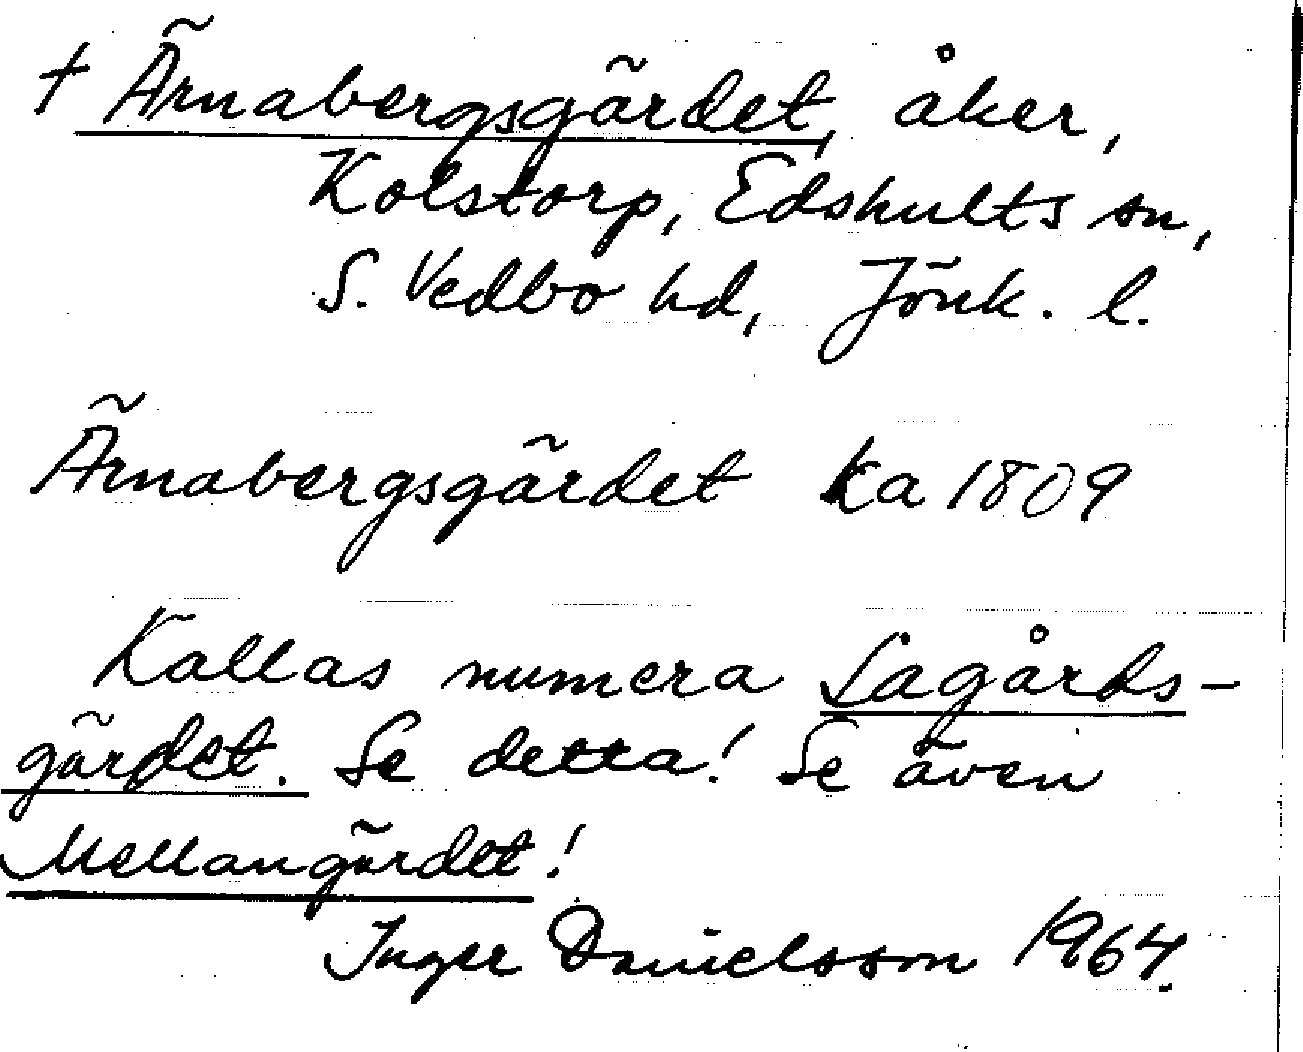 † Ärnabergsgärdet, åker,
Kolstorp, Edshults sn,
S. Vedbo hd, Jönk. l.
Ärnabergsgärdet ka 1809
Kallas numera Lagårds-
gärdet. Se detta! Se även
Mellangärdet!
Inger Danielsson 1964.